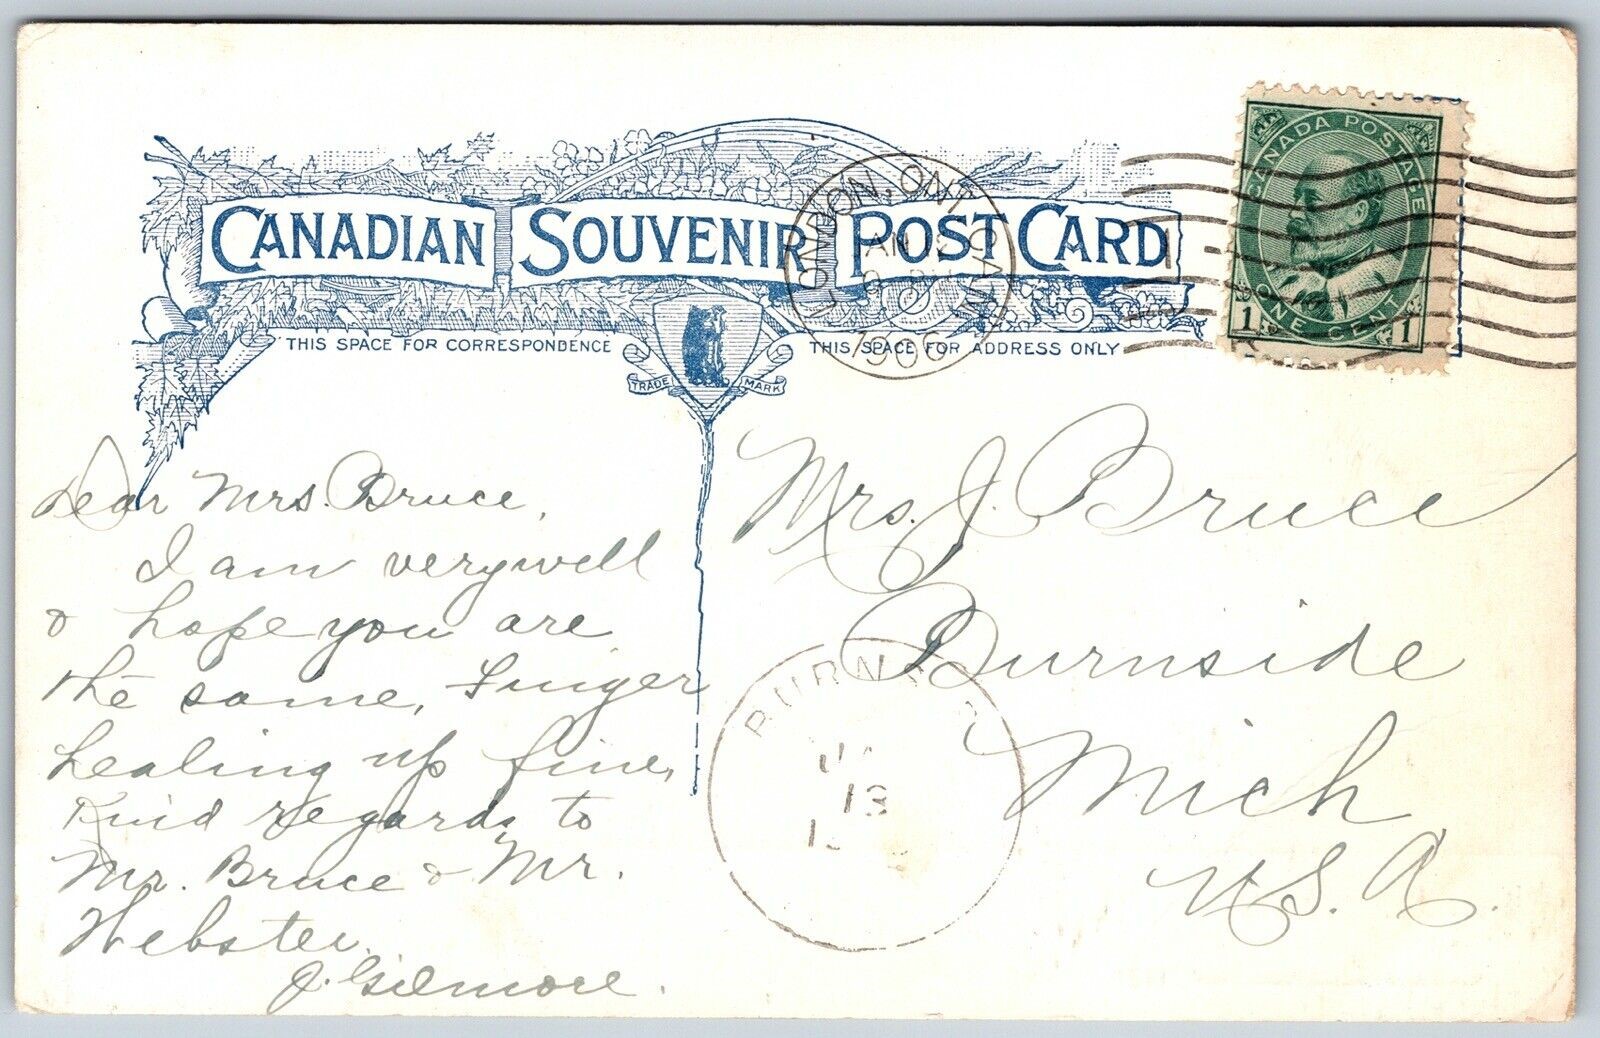 CANADIAN SOUVENIR POST CARD
THIS SPACE FOR CORRESPONDENCE
THIS SPACE FOR ADDRESS ONLY
TRADE MARK
LONDON, ONT. CAN.
1906
CANADA POSTAGE
1 ONE CENT 1
Dear Mrs. Bruce,
I am very well
& hope you are
the same, Finger
healing up fine,
Kind regards to
Mr. Bruce & Mr.
Webster.
J. Gilmore.
Mrs. J. Bruce
Burnside
Mich
U.S.A.
13